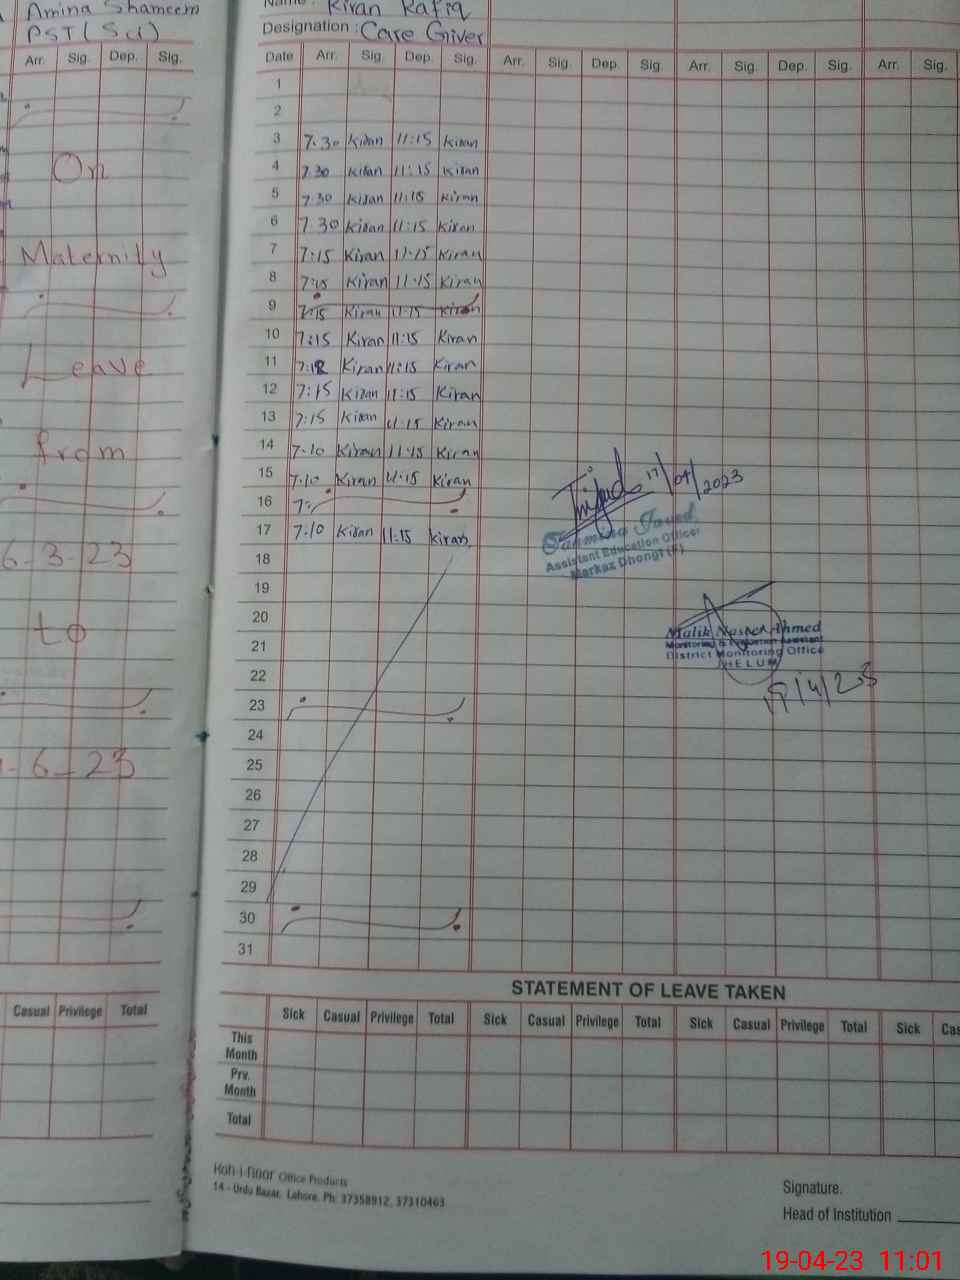 Amina Shameem
PST (Sci)
Arr. Sig. Dep. Sig.
On
Maternity
Leave
from
6-3-23
to
-6-23
Casual Privilege Total
Name : Kiran Rafiq
Designation : Care Giver
Date Arr. Sig. Dep. Sig. Arr. Sig. Dep. Sig. Arr. Sig. Dep. Sig. Arr. Sig.
1
2
3 7.30 Kiran 11:15 Kiran
4 7.30 Kiran 11:15 Kiran
5 7.30 Kiran 11:15 Kiran
6 7.30 Kiran 11:15 Kiran
7 7:15 Kiran 11:15 Kiran
8 7:15 Kiran 11:15 Kiran
9 7:15 Kiran 11:15 Kiran
10 7:15 Kiran 11:15 Kiran
11 7:12 Kiran 11:15 Kiran
12 7:15 Kiran 11:15 Kiran
13 7:15 Kiran 11:15 Kiran
14 7.10 Kiran 11:15 Kiran
15 7.10 Kiran 11:15 Kiran
16 7:
17 7.10 Kiran 11:15 Kiran
18
19
20
21
22
23
24
25
26
27
28
29
30
31
17/04/2023
Assistant Education Officer
Markaz Dhongi (F)
Malik Nasher Ahmed
Monitoring & Evaluation Assistant
District Monitoring Office
JHELUM
19/4/23
STATEMENT OF LEAVE TAKEN
Sick Casual Privilege Total Sick Casual Privilege Total Sick Casual Privilege Total Sick Cas
This Month
Prv. Month
Total
Koh-i-noor Office Products
14 - Urdu Bazar, Lahore. Ph: 37358912, 37310463
Signature.
Head of Institution
19-04-23 11:01